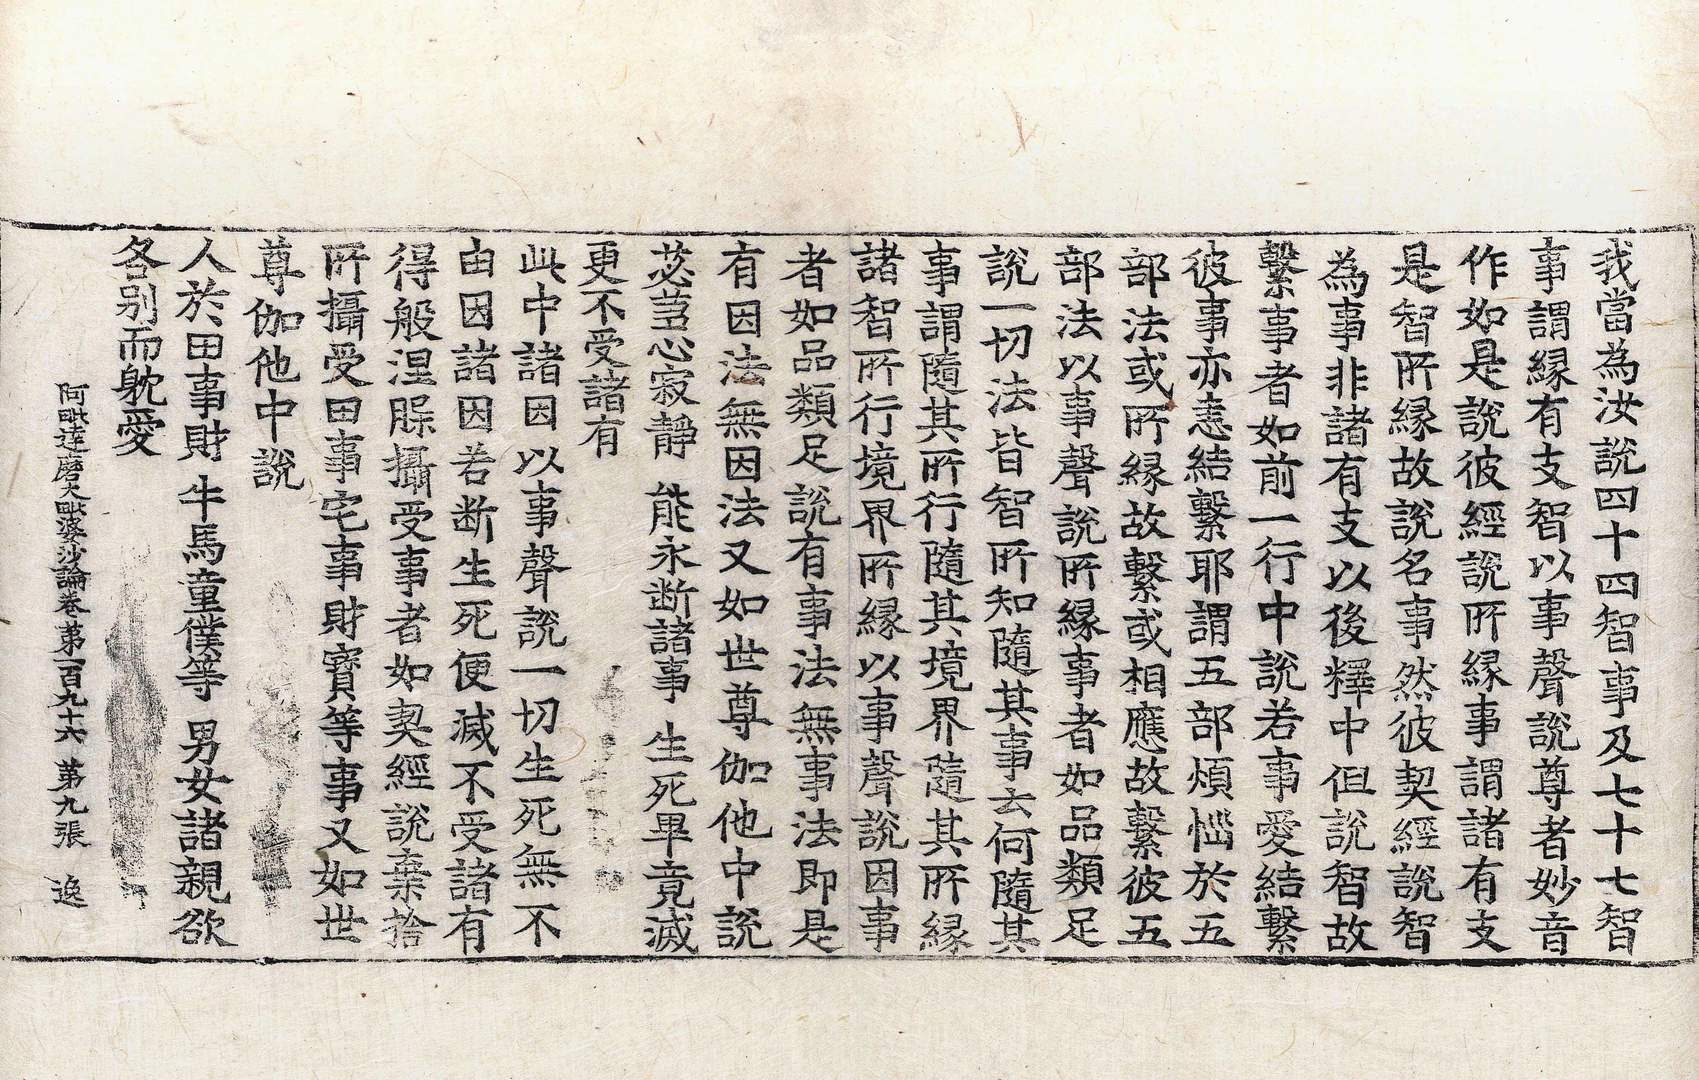 我當為汝說四十四智事及七十七智
事謂縁有支智以事聲說尊者妙音
作如是說彼經說所縁事謂諸有支
是智所縁故說名事然彼契經說智
為事非諸有支以後釋中但說智故
繫事者如前一行中說若事愛結繫
彼事亦恚結繫耶謂五部煩惱於五
部法或所縁故繫或相應故繫彼五
部法以事聲說所縁事者如品類足
說一切法皆智所知隨其事云何隨其
事謂隨其所行隨其境界隨其所縁
諸智所行境界所縁以事聲說因事
者如品類足說有事法無事法即是
有因法無因法又如世尊伽他中說
苾芻心寂靜 能永断諸事 生死畢竟滅
更不受諸有
此中諸因以事聲說一切生死無不
由因諸因若断生死便滅不受諸有
得般涅槃攝受事者如契經說棄捨
所攝受田事宅事財寶等事又如世
尊伽他中說
人於田事財 牛馬童僕等 男女諸親欲
各別而躭愛
阿毗達磨大毗婆沙論卷第一百九十六 第九張 逸